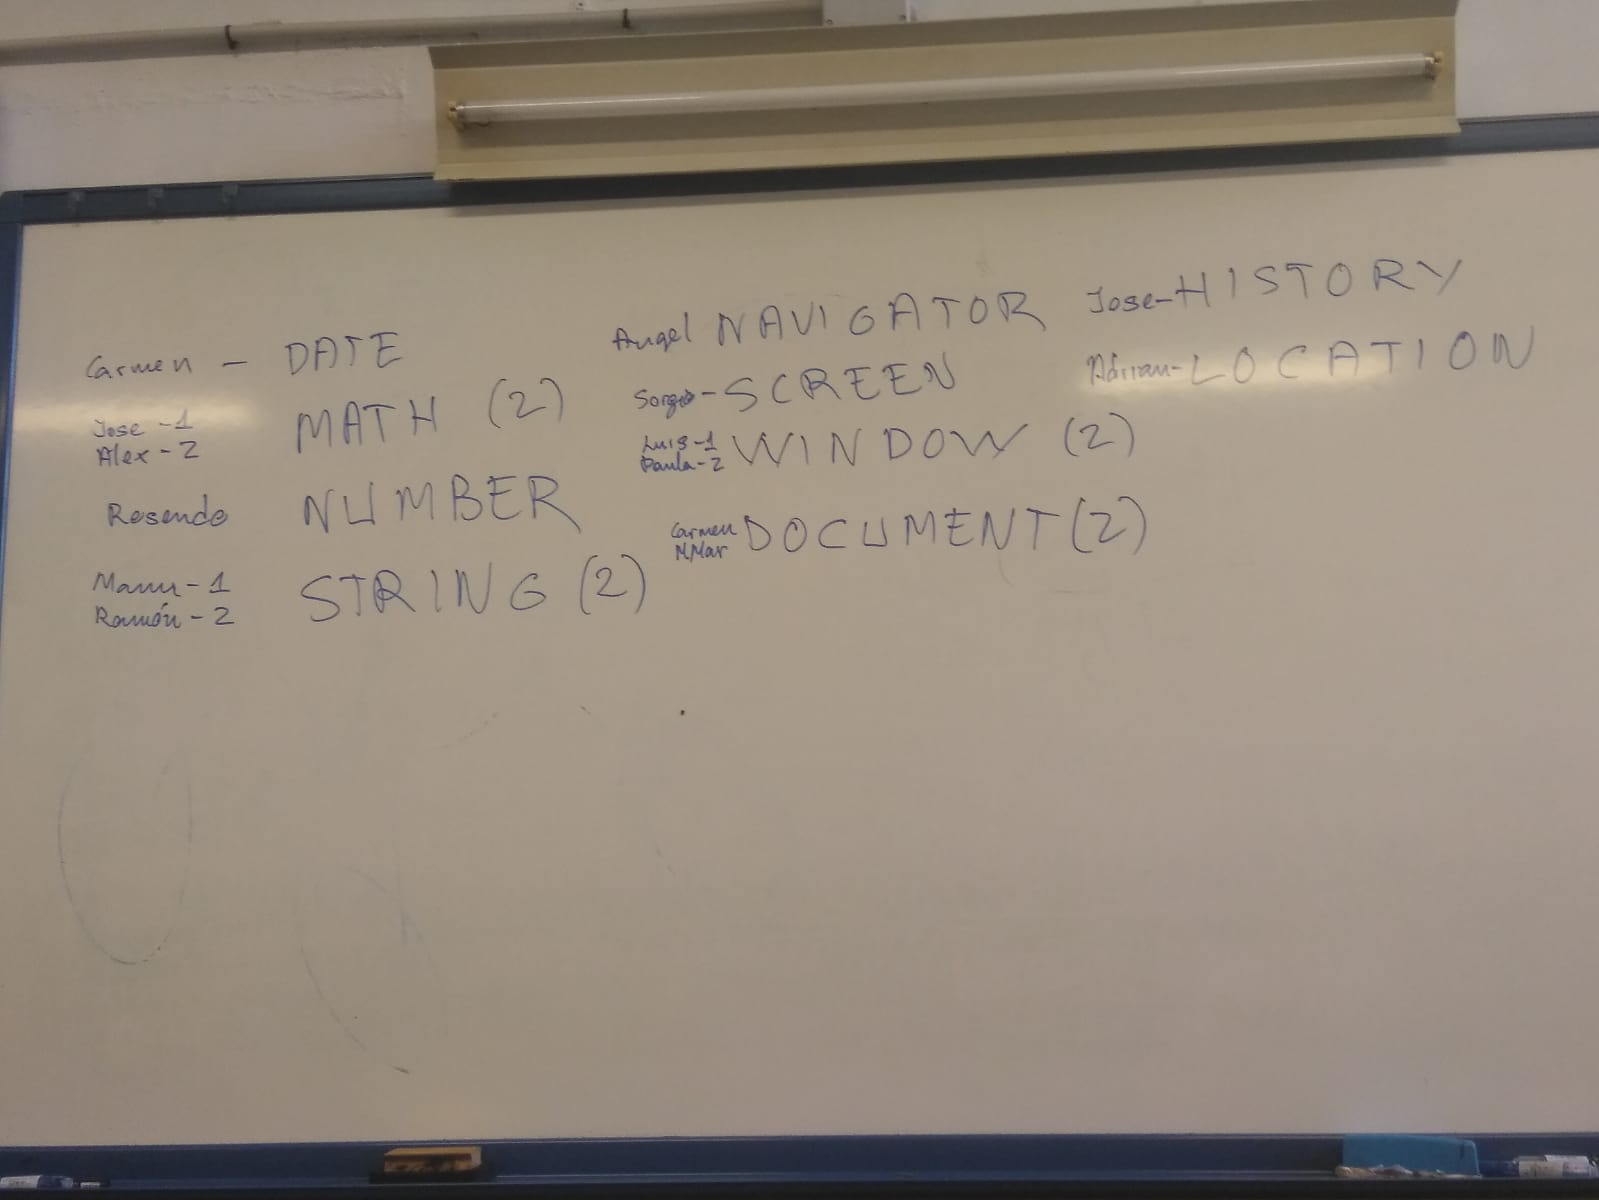 Carmen - DATE
Jose - 1
Alex - 2
MATH (2)
Rosendo NUMBER
Manu - 1
Ramón - 2
STRING (2)
Angel NAVIGATOR
Sergio - SCREEN
Luis - 1
Paula - 2
WINDOW (2)
Carmen
M.Mar
DOCUMENT (2)
Jose - HISTORY
Adrian - LOCATION